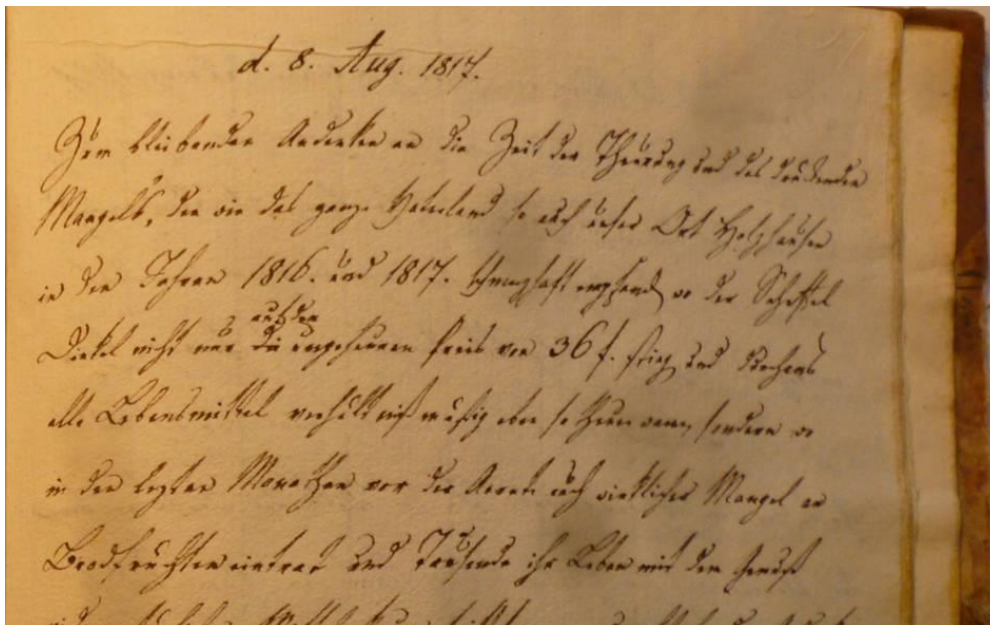 d. 8. Aug. 1817.
Zum bleibenden Andenken an die Zeit der Theurung und des drückenden
Mangels, den wie das ganze Vaterland so auch unser Ort Holzhausen
in den Jahren 1816. und 1817. schmerzhaft empfand, wo der Scheffel
auf den
Dinkel nicht nur die ungeheuren Preis von 36 f. stieg und
alle Lebensmittel verhältnißmäßig eben so theuer waren, sondern wo
in den lezten Monathen vor der Aernte auch wirklicher Mangel an
Brodfrüchten eintrat und Tausende ihr Leben mit dem Genuß